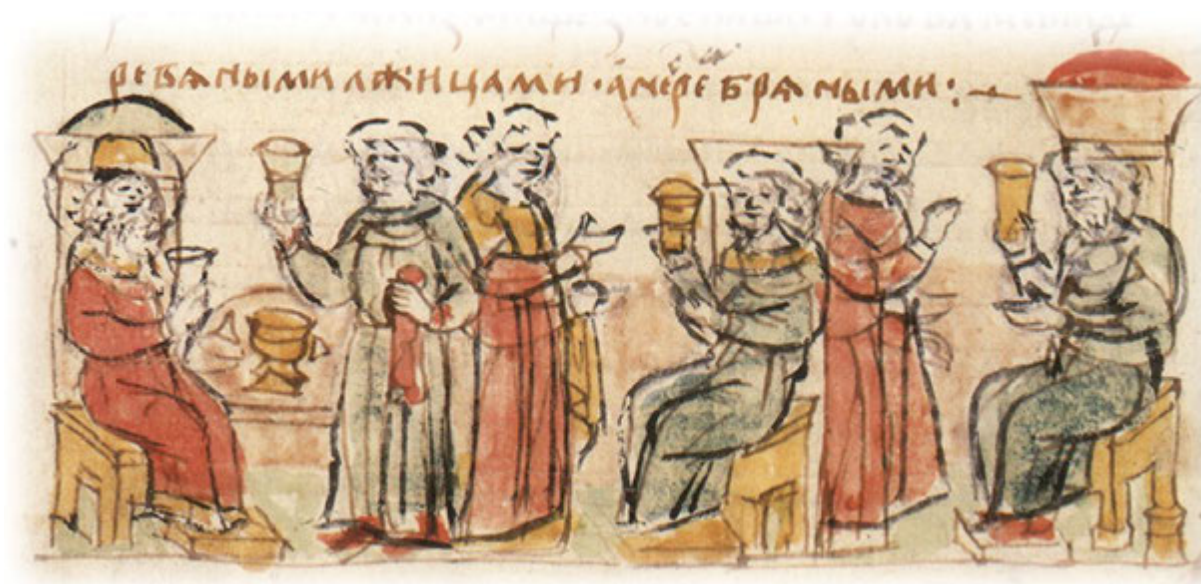 ревѧными лжицами · а не сребрѧными :~